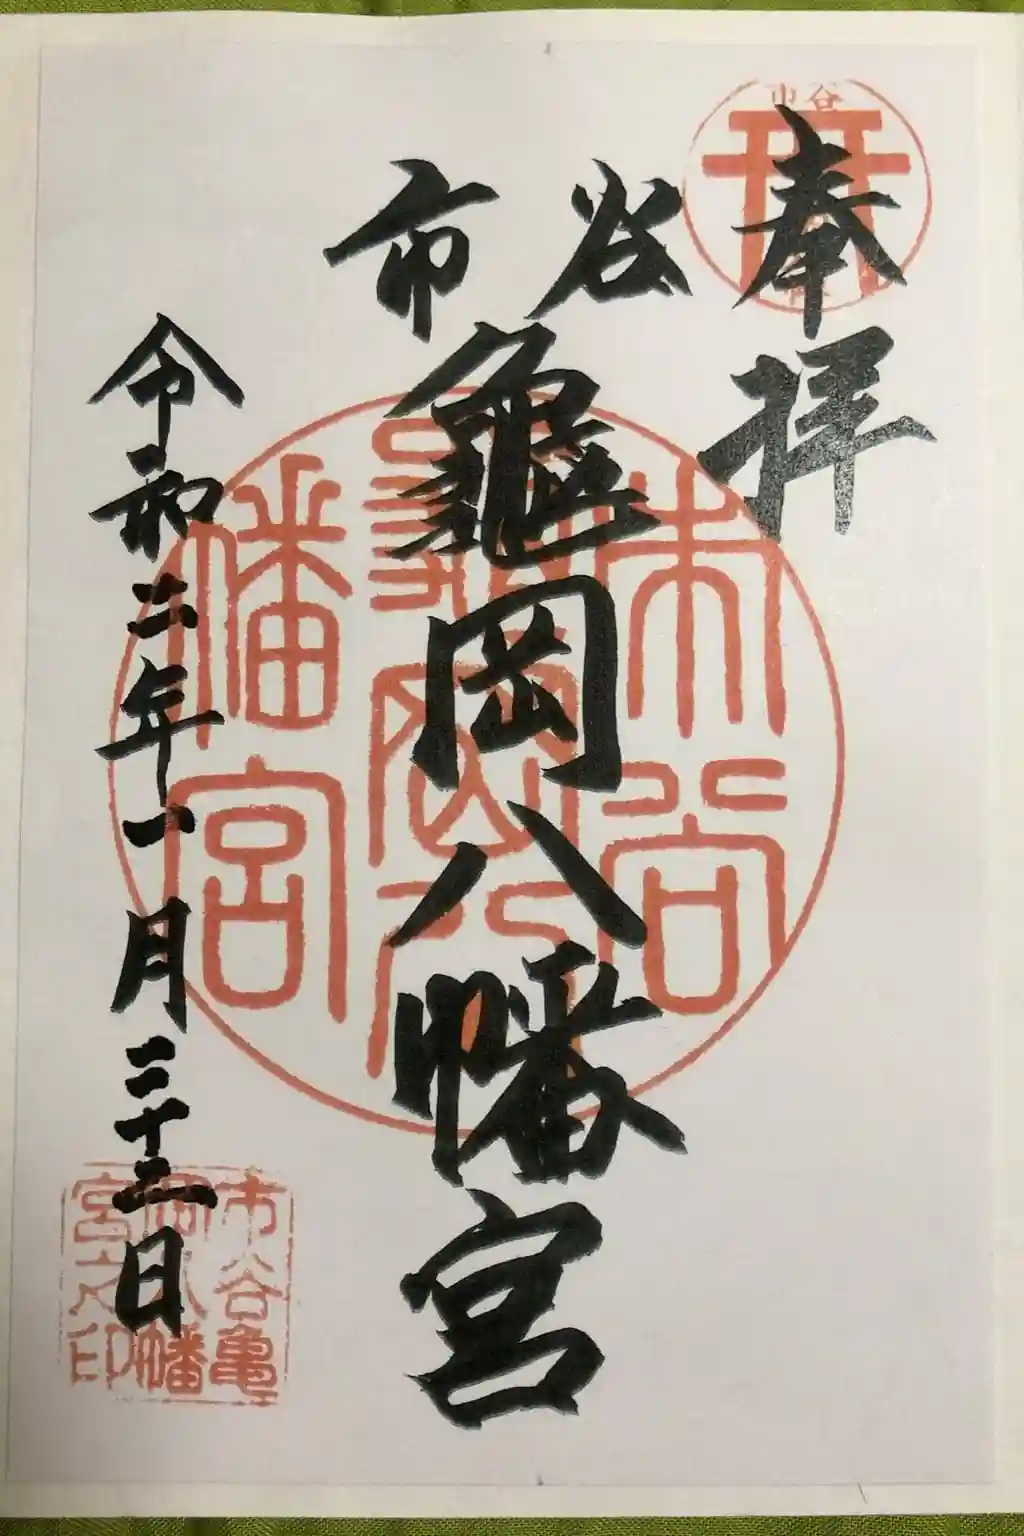 奉拝
市谷
龜岡八幡宮
令和二年一月二十二日
市谷
市谷
龜岡八
幡宮
市谷亀
岡八幡
宮之印